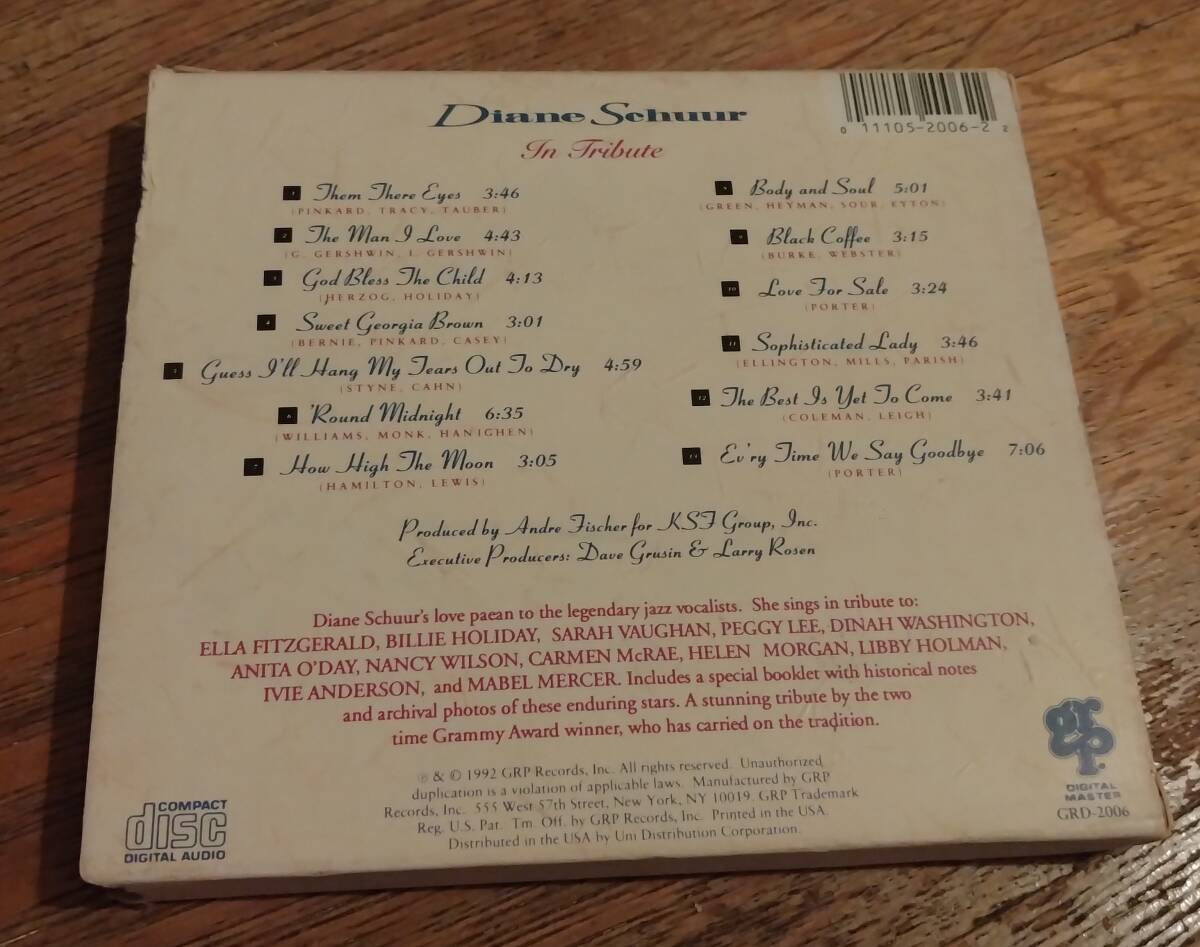 Diane Schuur
In Tribute
0 11105-2006-2 2
1 Them There Eyes 3:46
(PINKARD, TRACY, TAUBER)
2 The Man I Love 4:43
(G. GERSHWIN, I. GERSHWIN)
3 God Bless The Child 4:13
(HERZOG, HOLIDAY)
4 Sweet Georgia Brown 3:01
(BERNIE, PINKARD, CASEY)
5 Guess I'll Hang My Tears Out To Dry 4:59
(STYNE, CAHN)
6 'Round Midnight 6:35
(WILLIAMS, MONK, HANIGHEN)
7 How High The Moon 3:05
(HAMILTON, LEWIS)
Body and Soul 5:01
(GREEN, HEYMAN, SOUR, EYTON)
9 Black Coffee 3:15
(BURKE, WEBSTER)
10 Love For Sale 3:24
(PORTER)
11 Sophisticated Lady 3:46
(ELLINGTON, MILLS, PARISH)
12 The Best Is Yet To Come 3:41
(COLEMAN, LEIGH)
13 Ev'ry Time We Say Goodbye 7:06
(PORTER)
Produced by Andre Fischer for KSF Group, Inc.
Executive Producers: Dave Grusin & Larry Rosen
Diane Schuur's love paean to the legendary jazz vocalists. She sings in tribute to:
ELLA FITZGERALD, BILLIE HOLIDAY, SARAH VAUGHAN, PEGGY LEE, DINAH WASHINGTON,
ANITA O'DAY, NANCY WILSON, CARMEN McRAE, HELEN MORGAN, LIBBY HOLMAN,
IVIE ANDERSON, and MABEL MERCER. Includes a special booklet with historical notes
and archival photos of these enduring stars. A stunning tribute by the two
time Grammy Award winner, who has carried on the tradition.
℗ & © 1992 GRP Records, Inc. All rights reserved. Unauthorized
duplication is a violation of applicable laws. Manufactured by GRP
Records, Inc. 555 West 57th Street, New York, NY 10019. GRP Trademark
Reg. U.S. Pat. Tm. Off. by GRP Records, Inc. Printed in the USA.
Distributed in the USA by Uni Distribution Corporation.
COMPACT
disc
DIGITAL AUDIO
grp
DIGITAL
MASTER
GRD-2006